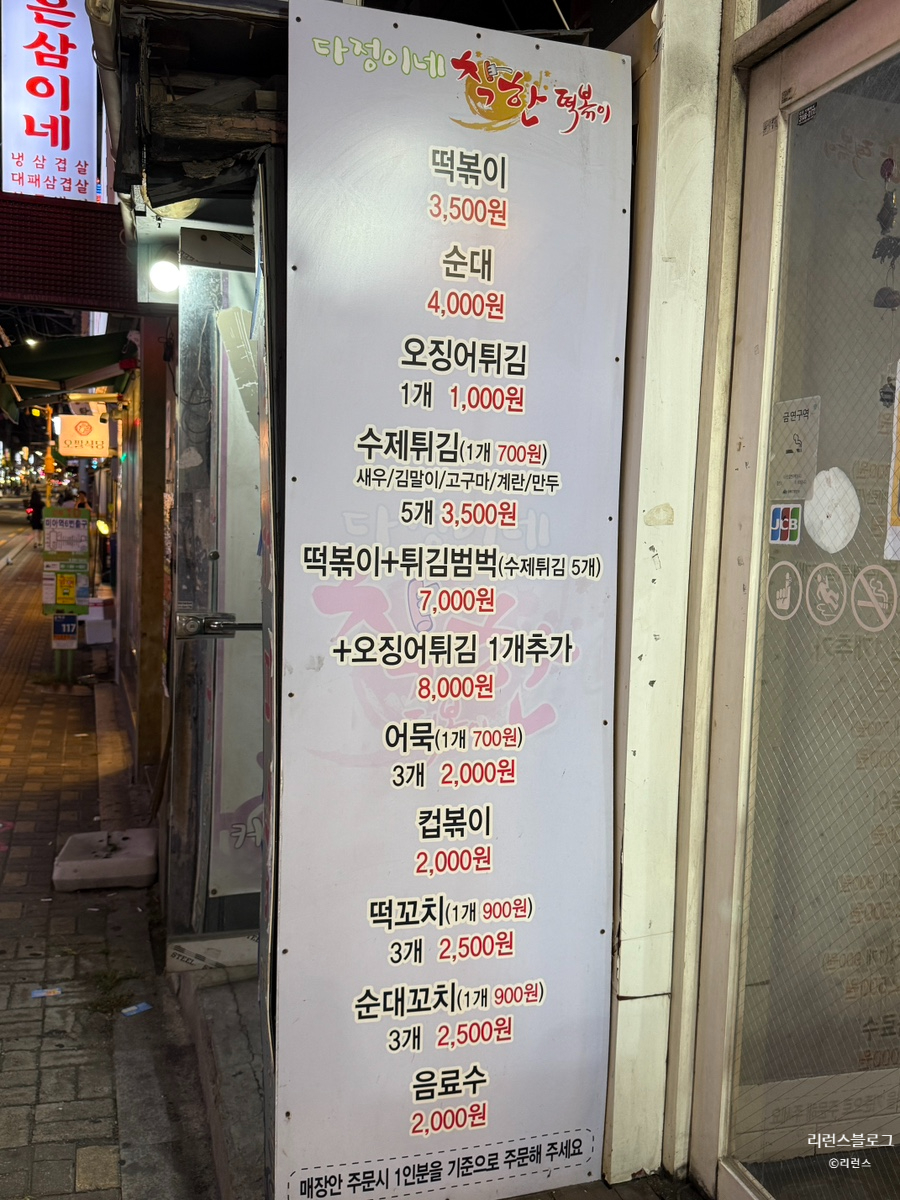 은삼이네
냉삼겹살
대패삼겹살
다정이네 착한 떡볶이
떡볶이
3,500원
순대
4,000원
오징어튀김
1개 1,000원
수제튀김(1개 700원)
새우/김말이/고구마/계란/만두
5개 3,500원
떡볶이+튀김범벅(수제튀김 5개)
7,000원
+오징어튀김 1개추가
8,000원
어묵(1개 700원)
3개 2,000원
컵볶이
2,000원
떡꼬치(1개 900원)
3개 2,500원
순대꼬치(1개 900원)
3개 2,500원
음료수
2,000원
매장안 주문시 1인분을 기준으로 주문해 주세요
미아역6번출구
117
금연구역
JCB
리런스블로그
©리런스